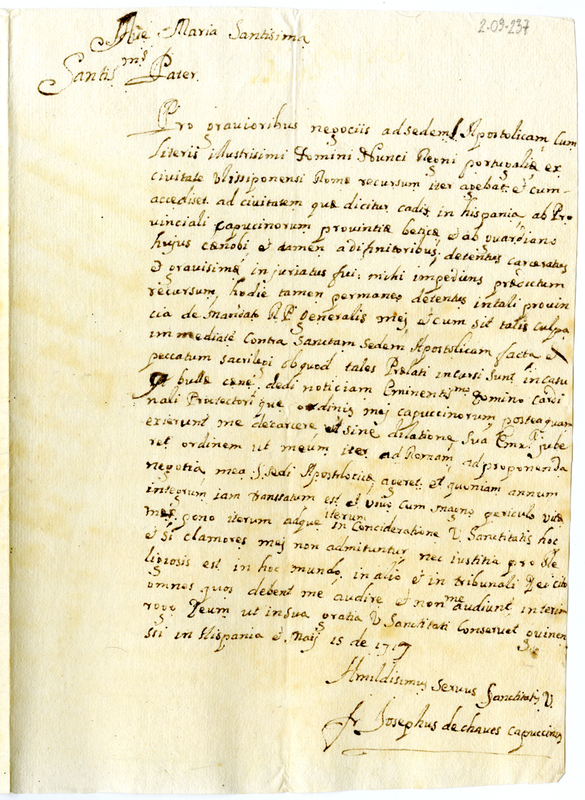 2-09-237
Aue Maria Santisima
Santis.mo Pater.
Pro grauioribus negociis ad sedem Apostolicam, cum
literis illustrisimi Domini Nunci Regni portugalie ex
ciuitate Vlissiponensi Rome recursum iter agebat: et cum
accediset ad ciuitatem que dicitur cadix in hispania, ab Pro
uinciali capucinorum prouintie betice et ab guardiano
hujus cenobi et damen a difinitoribus: detentus carceratus
et grauisime in juriatus fui: michi impediens precutum
recursum, hodie tamen permaneo detentus in tali prouin
cia de mandato R. P. Generalis mej et cum sit talis culpa
immediate Contra Sanctam Sedem Apostolicam facta et
peccatum sacrilegi ob quod tales Prelati incursi sunt in casu
bulle cene: dedi noticiam Eminentis.mo Domino Cardi
nali Protectori que ordinis mej capuccinorum posteaquam
exierunt me decarcere et sine dilatione, sua Em.a jube
ret ordinem ut meum iter ad Romam, ad proponenda
negotia mea S. Sedi Apostolocice ageret: et quoniam annum
integrum iam transtatum est et viuo cum magno periculo vite
mee, pono iterum adque iterum in Conciderationé V. Sanctitatis hoc
et si clamores mej non admituntur nec iustitia pro Re
ligiosis est in hoc mundo in alio et in tribunali Dei cito
omnes quos debent me audire et non me audiunt, interim
rogo Deum ut in sua gratia V Sanctitati Conseruet quinen
sii in Hispania et Maij 15 de 1717
Humildisimus Seruus Sanctitatis V.
fr Josephus de chaues capuccinus